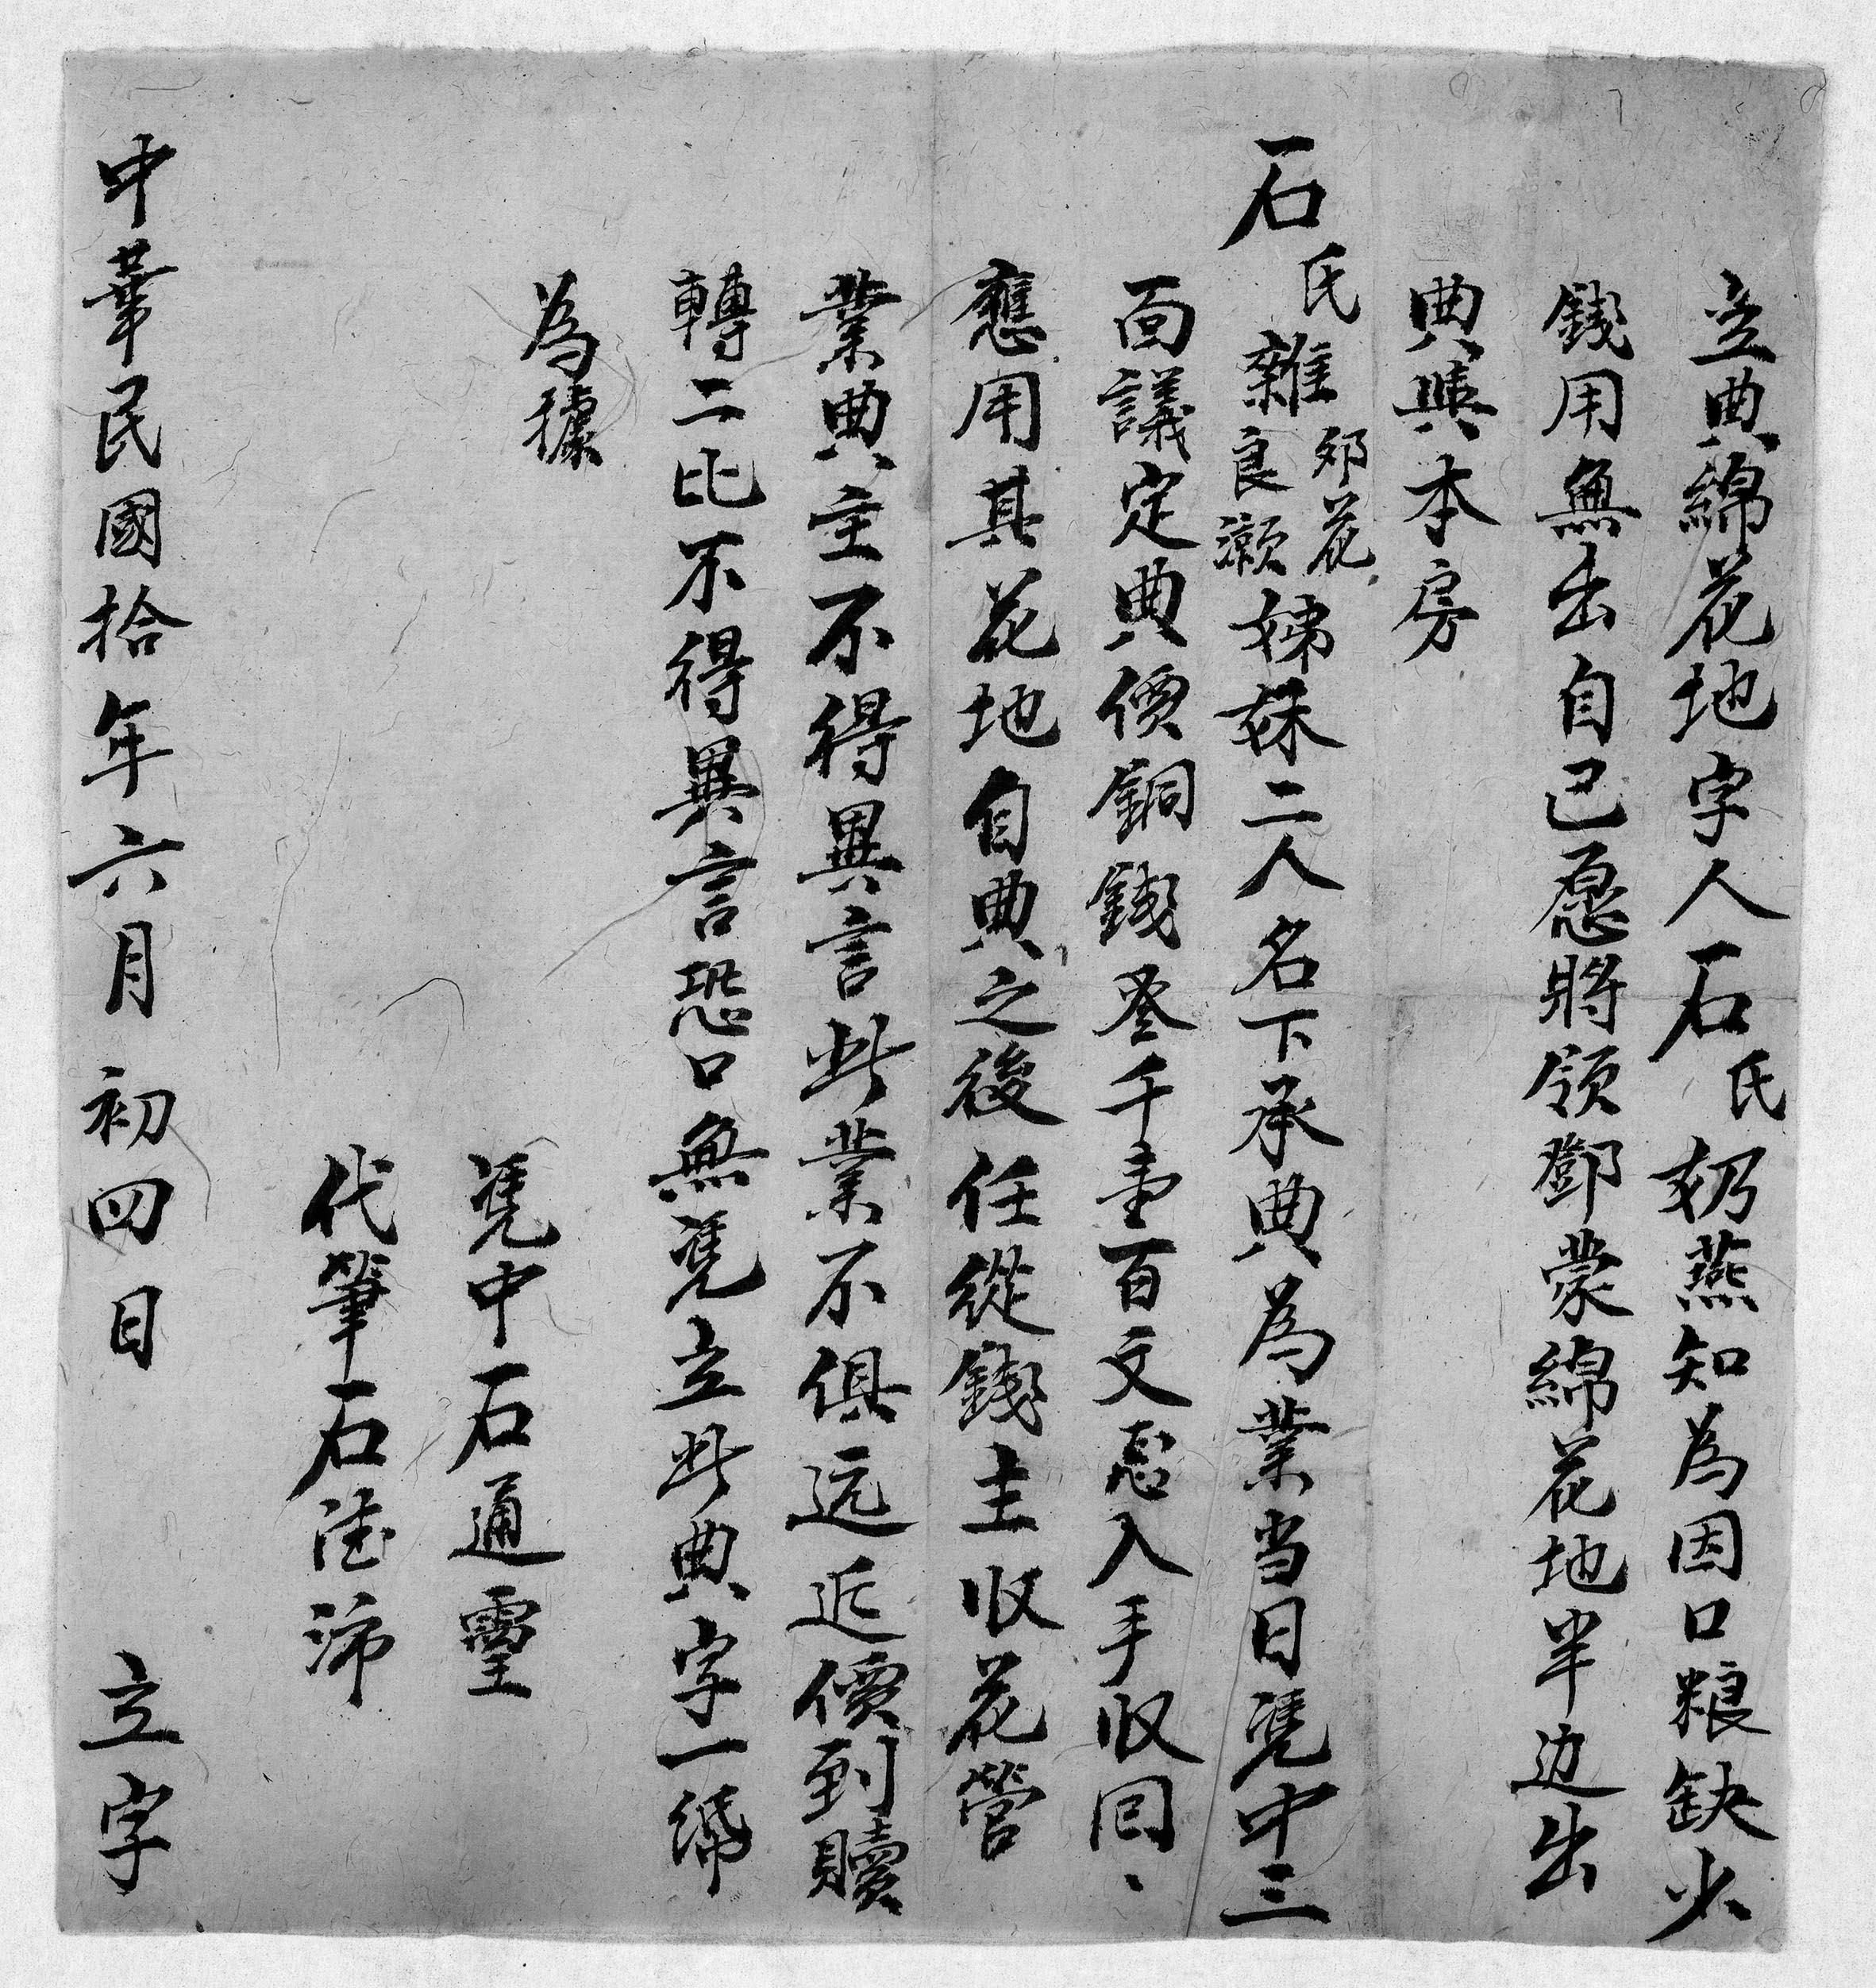 立典綿花地字人石氏奶燕知為因口粮缺少
錢用無出自己愿將領鄧蒙綿花地半边出
典與本房
石氏雜郊花良瀬姊妹二人名下承典為業当日凭中三
面議定典價銅錢叁千壹百文悉入手收回、
應用其花地自典之後任從錢主收花管
業典主不得異言此業不俱远近價到贖
轉二比不得異言恐口無凭立此典字一紙
為據
凭中石通靈
代筆石沛
中華民國拾年六月初四日 立字